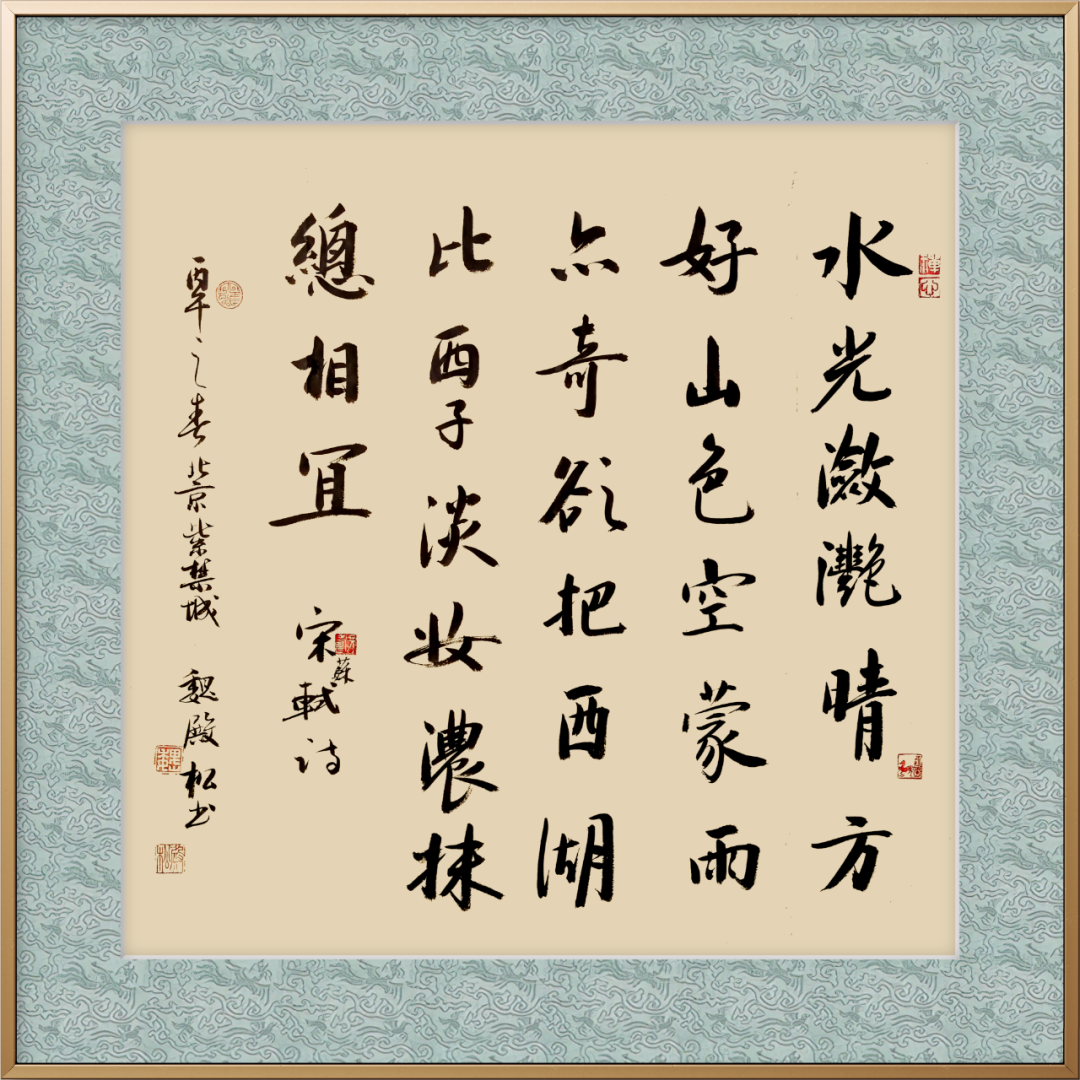 水光瀲灧晴方
好山色空蒙雨
亦奇欲把西湖
比西子淡妝濃抹
總相冝 宋蘇軾诗
之春北京紫禁城 魏殿松书